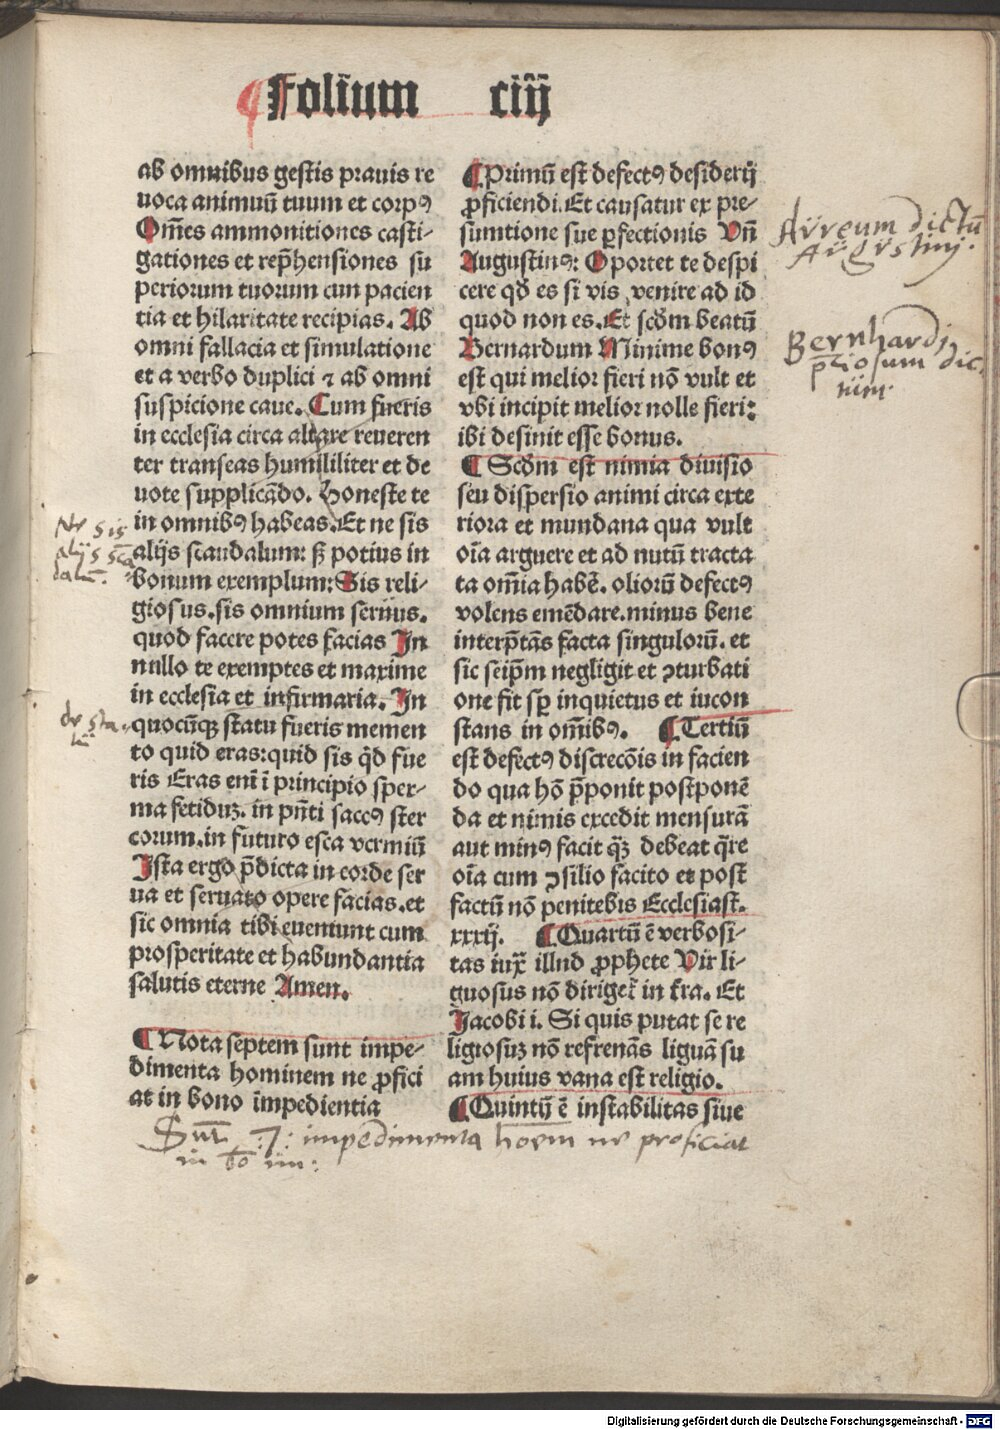 ¶Folium ciiij
ab omnibus gestis prauis re
uoca animuū tuum et corpꝰ
Om̄es ammonitiones casti-
gationes et rep̄hensiones su
periorum tuorum cun pacien
tia et hilaritate recipias. Ab
omni fallacia et simulatione
et a verbo duplici ⁊ ab omni
suspicione caue. Cum fueris
in ecclesia circa altare reueren
ter transeas humililiter et de
uote supplicādo. Honeste te
in omnibꝰ habeas. Et ne sis
alijs scandalum: sꝫ potius in
bonum exemplum: Sis reli-
giosus. sis omnium seruus.
quod facere potes facias In
nullo te exemptes et maxime
in ecclesia et infirmaria. In
quocūqꝫ statu fueris memen
to quid eras: quid sis q̄d fue
ris Eras eni̅ i̅ principio sper-
ma fetiduꝫ. in pn̄ti saccꝰ ster
corum. in futuro esca vermiū
Ista ergo p̄dicta in corde ser
ua et seruato opere facias. et
sic omnia tibi eueniunt cum
prosperitate et habundantia
salutis eterne Amen.
¶Nota septem sunt impe-
dimenta hominem ne ꝓfici
at in bono īmpedientia
¶Primū est defectꝰ desiderij
ꝓficiendi. Et causatur ex pre-
sumtione sue ꝑfectionis Vn̄
Augustinꝰ: Oportet te despi
cere qd̄ es si vis venire ad id
quod non es. Et scd̄m beatū
Bernardum Minime bonꝰ
est qui melior fieri nō vult et
vbi incipit melior nolle fieri:
ibi desinit esse bonus.
¶Scd̄m est nimia diuisio
seu dispersio animi circa exte
riora et mundana qua vult
oīa arguere et ad nutū tracta
ta om̄ia habē. oliorū defectꝰ
volens emēdare. minus bene
interp̄tās facta singulorū. et
sic seip̄m negligit et ꝯturbati
one fit sꝑ inquietus et iucon
stans in om̄ibꝰ. ¶Tertiū
est defectꝰ discrecōis in facien
do qua hō p̄ponit postponē
da et nimis excedit mensurā
aut minꝰ facit qꝫ debeat q̄re
oīa cum ꝯsilio facito et post
factū nō penitebis Ecclesiast.
xxxij. ¶Quartū ē verbosi-
tas iux̄ illnd ꝓphete Vir li-
guosus nō dirigeꝉ in t̄ra. Et
Jacobi i. Si quis putat se re
ligiosuꝫ nō refrenās liguā su
am huius vana est religio.
¶Quintū ē instabilitas siue
Aureum dictū
Augustinj.
Bernhardj
p̄tiosum dic-
tum.
Ne sis
alijs scā
dalū.
de sta-
tu
Sunt .7. impedimenta hoēm ne proficiat
in bō
Digitalisierung gefördert durch die Deutsche Forschungsgemeinschaft - DFG